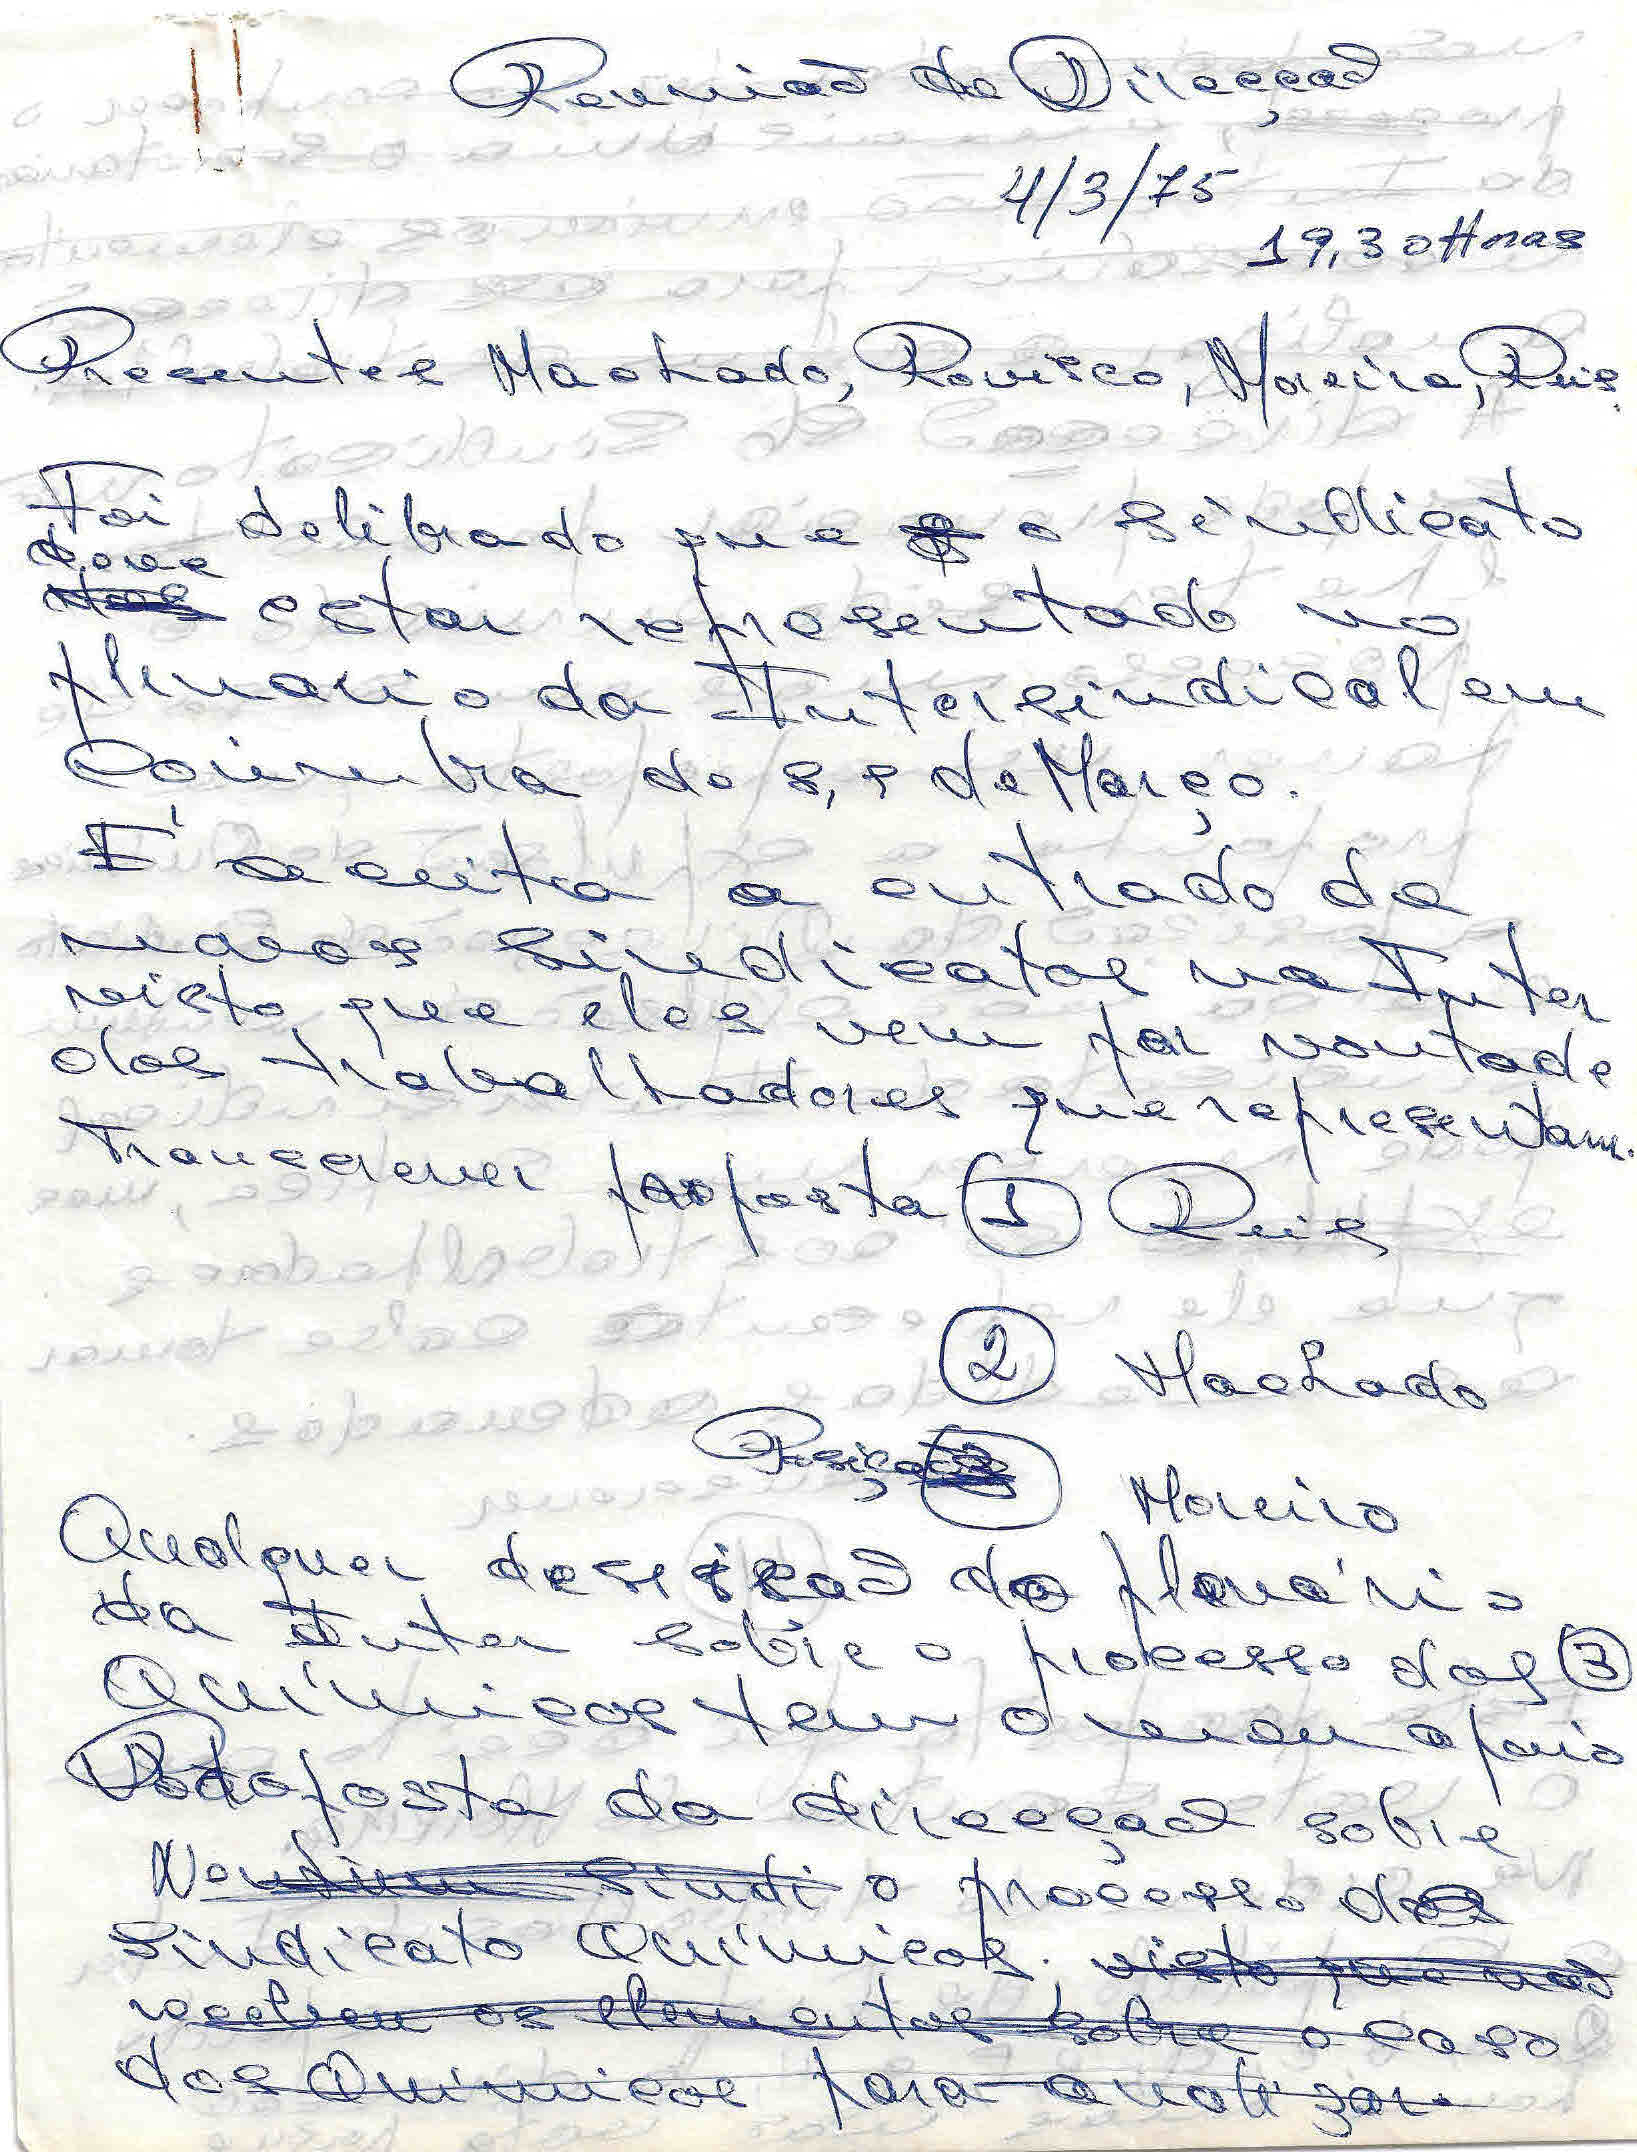 Reunião de Direcção
4/3/75
19,30 Horas
Presentes Machado, Rovisco, Moreira, Ruis
Foi delibrado que o sindicato
deve
estar representado no
plenario da Intersindical em
Coimbra do 8, 9 de Março.
É aceitra a entrado de
novos sindicatos na Inter
visto que eles vem por vontade
dos trabalhadores que representam.
Transcrever proposta 1 Ruis
2 Machado
Posição 3 Moreira
Qualquer desição do plenário
da Inter sobre o processo dos 3
Químicos tem o meu apoio
Proposta da direcção sobre
Nenhum Sindi o processo do
Sindicato Químicos. visto que não
recebeu os elementos sobre o caso
dos Químicos para analizar.